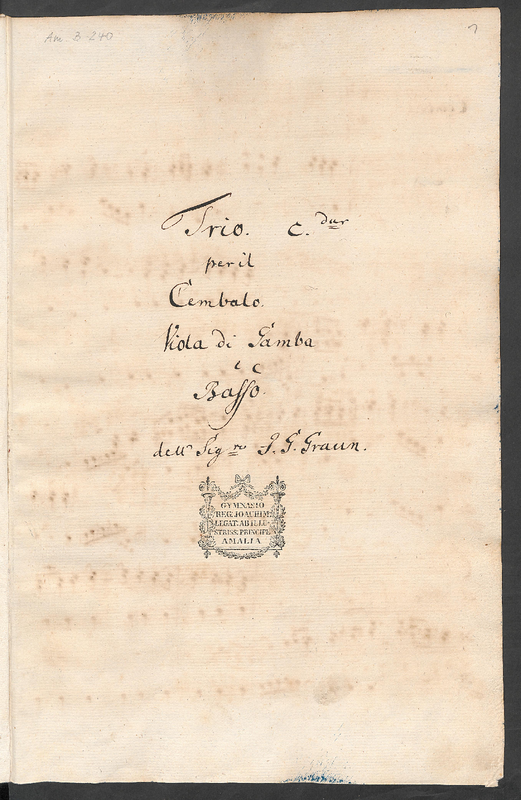 Am. B. 240
Trio. C. dur
per il
Cembalo.
Viola di Gamba
è
Basso.
dell Sigre J. G. Graun.
GYMNASIO
REG. IOACHIM.
LEGAT. AB ILLU-
STRISS. PRINCIPE
AMALIA